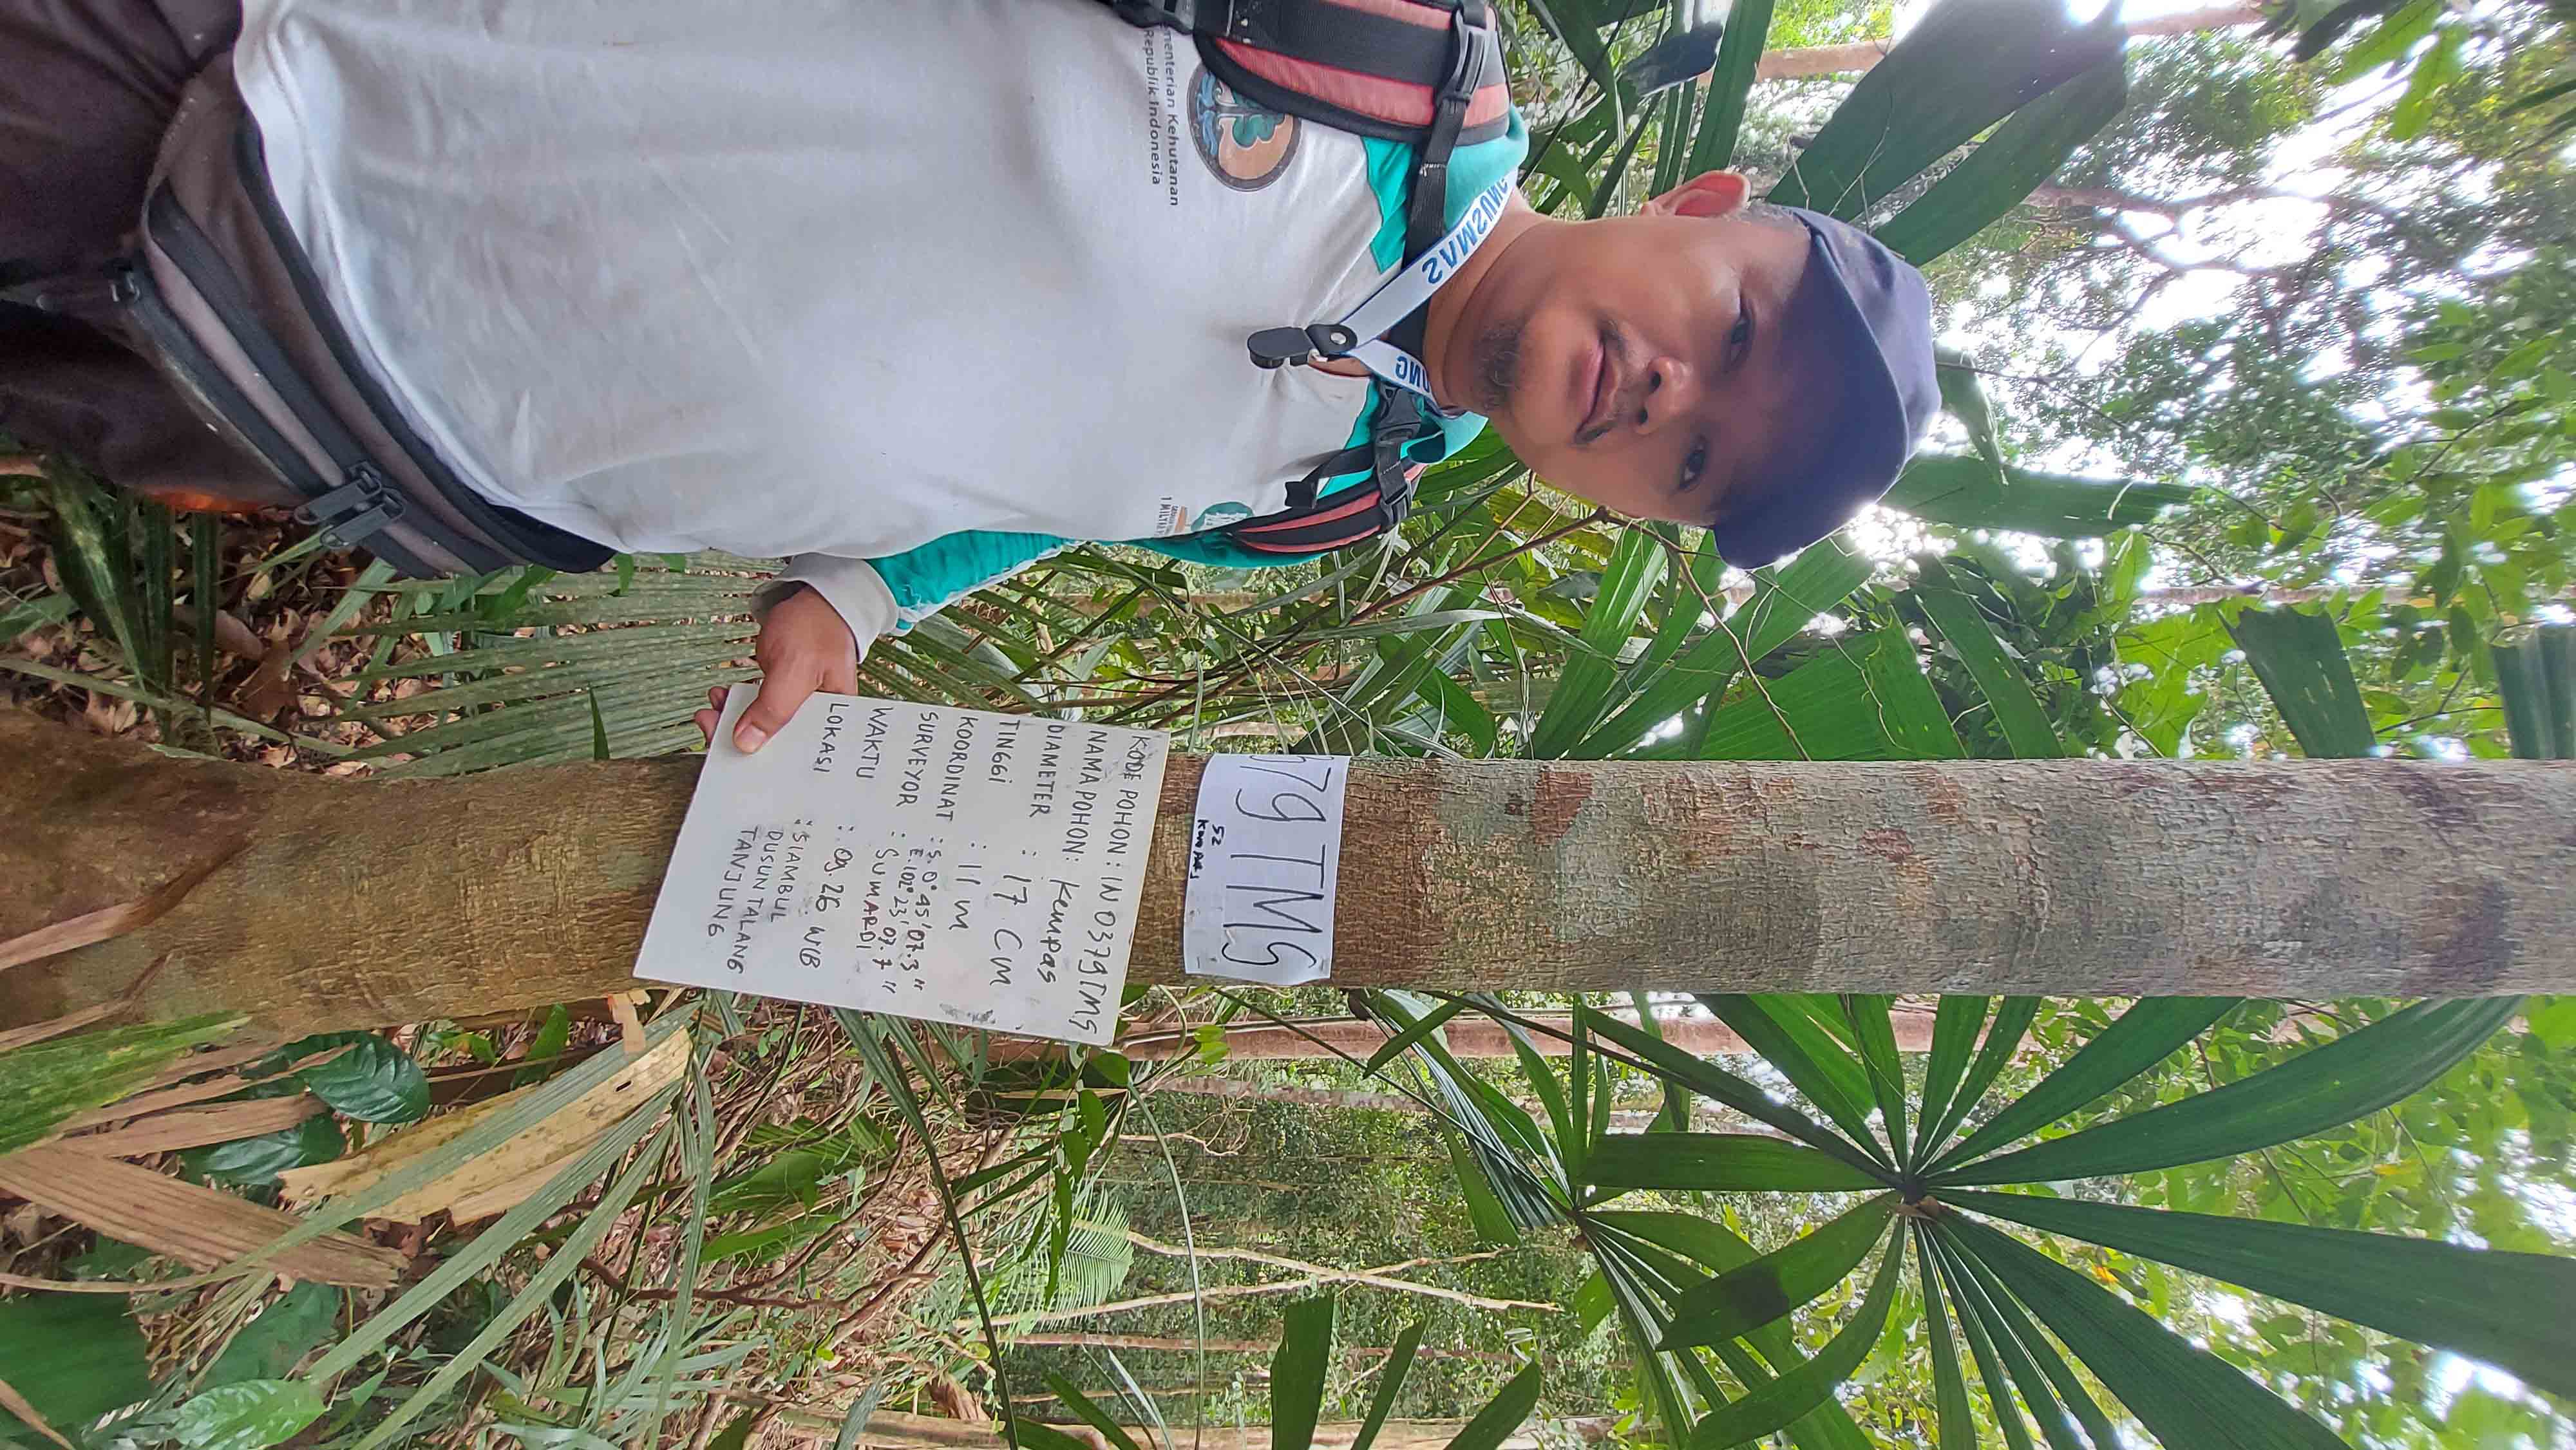 SAMSUNG
UNG
menterian Kehutanan
Republik Indonesia
1 MILYAR
379 TMS
52
Kempas
KODE POHON : IN 0379TMS
NAMA POHON : Kempas
DIAMETER : 17 Cm
TINGGi : 11 m
KOORDINAT : S. 0° 45' 07.3 "
E. 102° 23' 07.7 "
SURVEYOR : SUMARDI
WAKTU : 09.26 WIB
LOKASI : SIAMBUL
DUSUN TALANG
TANJUNG